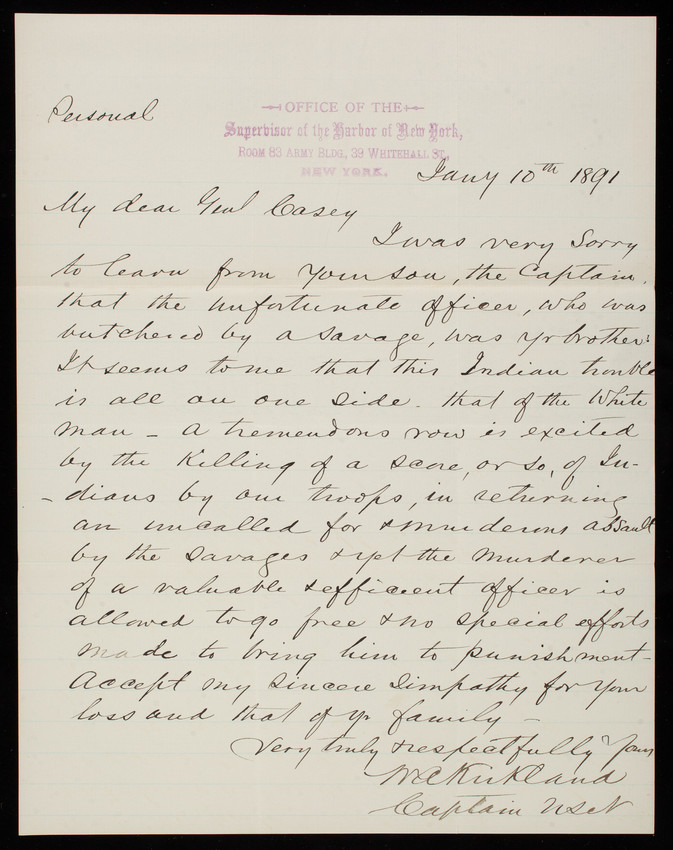 Personal
OFFICE OF THE
Supervisor of the Harbor of New York,
ROOM 83 ARMY BLDG, 39 WHITEHALL ST.,
NEW YORK.
Jany 10th 1891
My dear Genl Casey
I was very sorry
to learn from your son, the Captain,
that the unfortunate officer, who was
butchered by a savage, was yr brother.
It seems to me that this Indian trouble
is all on one side - that of the White
man - a tremendous row is excited
by the killing of a score, or so, of In-
-dians by our troops, in returning
an uncalled for & murderous assault
by the savages & yet the murderer
of a valuable & efficient officer is
allowed to go free & no special efforts
made to bring him to punishment -
Accept my sincere simpathy for your
loss and that of yr family -
Very truly & respectfully Yours
W A Kirkland
Captain USN